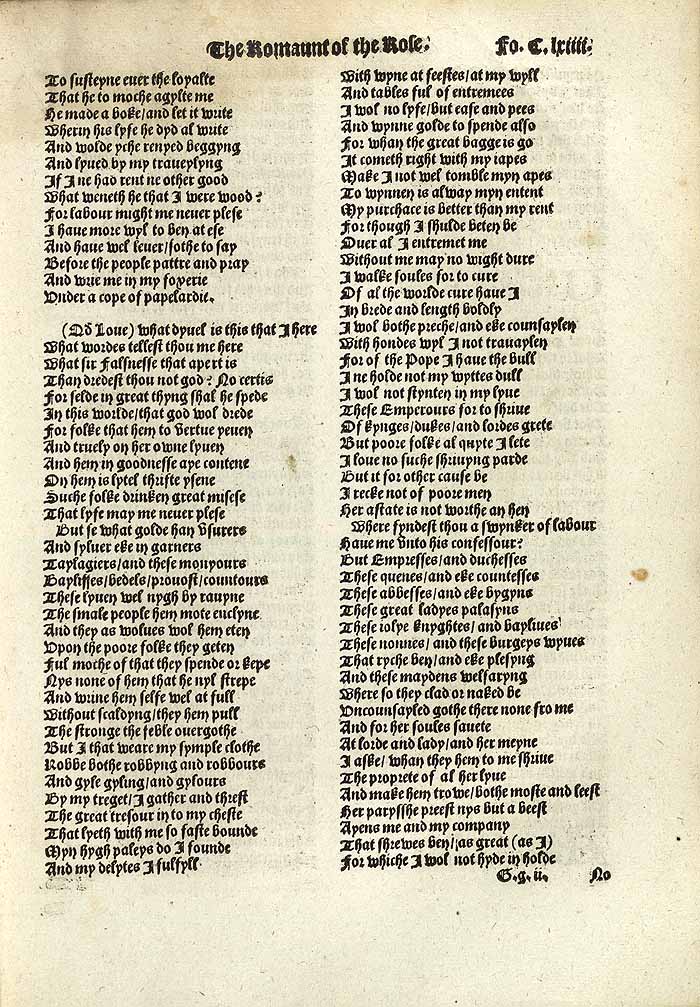 The Romaunt of the Rose.
Fo. C. lxiiii.
To susteyne euer the loyalte
That he to moche agylte me
He made a boke/and let it write
Wherin his lyfe he dyd al write
And wolde yche renyed beggyng
And lyued by my traueylyng
If I ne had rent ne other good
What weneth he that I were wood?
For labour might me neuer plese
I haue more wyl to ben at ese
And haue wel leuer/sothe to say
Before the people pattre and pray
And wrie me in my foxerie
Vnder a cope of papelardie.
(Qd Loue) what dyuel is this that I here
What wordes tellest thou me here
What sir Falsnesse that apert is
Than dredest thou not god? No certis
For selde in great thyng shal he spede
In this worlde/that god wol drede
For folke that hem to vertue yeuen
And truely on her owne lyuen
And hem in goodnesse aye contene
On hem is lytel thrifte ysene
Suche folke drinken great misese
That lyfe may me neuer plese
But se what golde han vsurers
And syluer eke in garners
Taylagiers/and these monyours
Bayliffes/bedels/prouost/countours
These lyuen wel nygh by rauyne
The smale people hem mote enclyne
And they as wolues wol hem eten
Vpon the poore folke they geten
Ful moche of that they spende or kepe
Nys none of hem that he nyl strepe
And wrine hem selfe wel at full
Without scaldyng/they hem pull
The stronge the feble ouergothe
But I that weare my symple clothe
Robbe bothe robbyng and robbours
And gyle gyling/and gylours
By my treget/I gather and threst
The great tresour in to my cheste
That lyeth with me so faste bounde
Myn hygh paleys do I founde
And my delytes I fulfyll
With wyne at feestes/at my wyll
And tables ful of entremees
I wol no lyfe/but ease and pees
And wynne golde to spende also
For whan the great bagge is go
It cometh right with my iapes
Make I not wel tomble myn apes
To wynnen is alway myn entent
My purchace is better than my rent
For though I shulde beten be
Ouer al I entremet me
Without me may no wight dure
I walke soules for to cure
Of al the worlde cure haue I
In brede and length boldly
I wol bothe preche/and eke counsaylen
With hondes wyl I not trauaylen
For of the Pope I haue the bull
I ne holde not my wyttes dull
I wol not stynten in my lyue
These Emperours for to shriue
Of kynges/dukes/and lordes grete
But poore folke al quyte I lete
I loue no suche shriuyng parde
But it for other cause be
I recke not of poore men
Her astate is not worthe an hen
Where fyndest thou a swynker of labour
Haue me vnto his confessour?
But Empresses/and duchesses
These quenes/and eke countesses
These abbesses/and eke bygyns
These great ladyes palasyns
These iolye knyghtes/and bayliues
These nonnes/and these burgeys wyues
That ryche ben/and eke plesyng
And these maydens welfaryng
Where so they clad or naked be
Vncounsayled gothe there none fro me
And for her soules sauete
At lorde and lady/and her meyne
I aske/whan they hem to me shriue
The proprete of al her lyue
And make hem trowe/bothe moste and leest
Her parysshe preest nys but a beest
Ayens me and my company
That shrewes ben/as great (as I)
For whiche I wol not hyde in holde
G.g. ii.
No